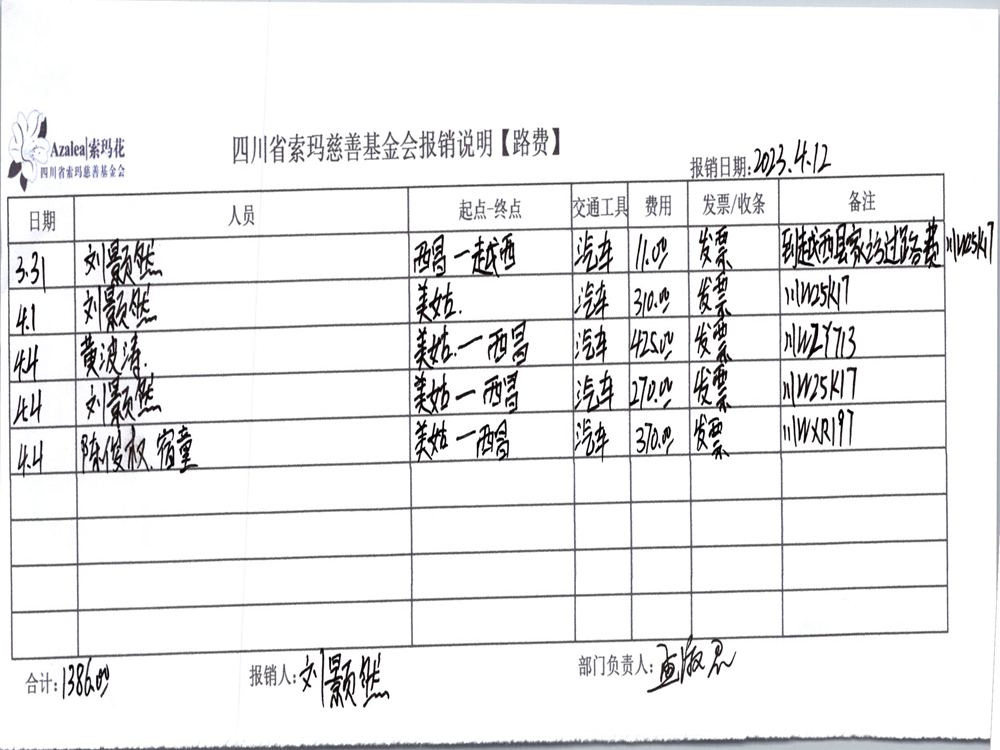 Azalea|索玛花
四川省索玛慈善基金会
四川省索玛慈善基金会报销说明【路费】
报销日期:2023.4.12
日期 人员 起点-终点 交通工具 费用 发票/收条 备注
3.31 刘颢然 西昌—越西 汽车 11.00 发票 到越西县家访过路费 川W25K17
4.1 刘颢然 美姑. 汽车 310.00 发票 川W25K17
4.4 黄波涛. 美姑.—西昌 汽车 425.00 发票 川WZY713
4.4 刘颢然 美姑—西昌 汽车 270.00 发票 川W25K17
4.4 陈俊权.宿童 美姑—西昌 汽车 370.00 发票 川WXR197
合计:1386.00 报销人:刘颢然 部门负责人: